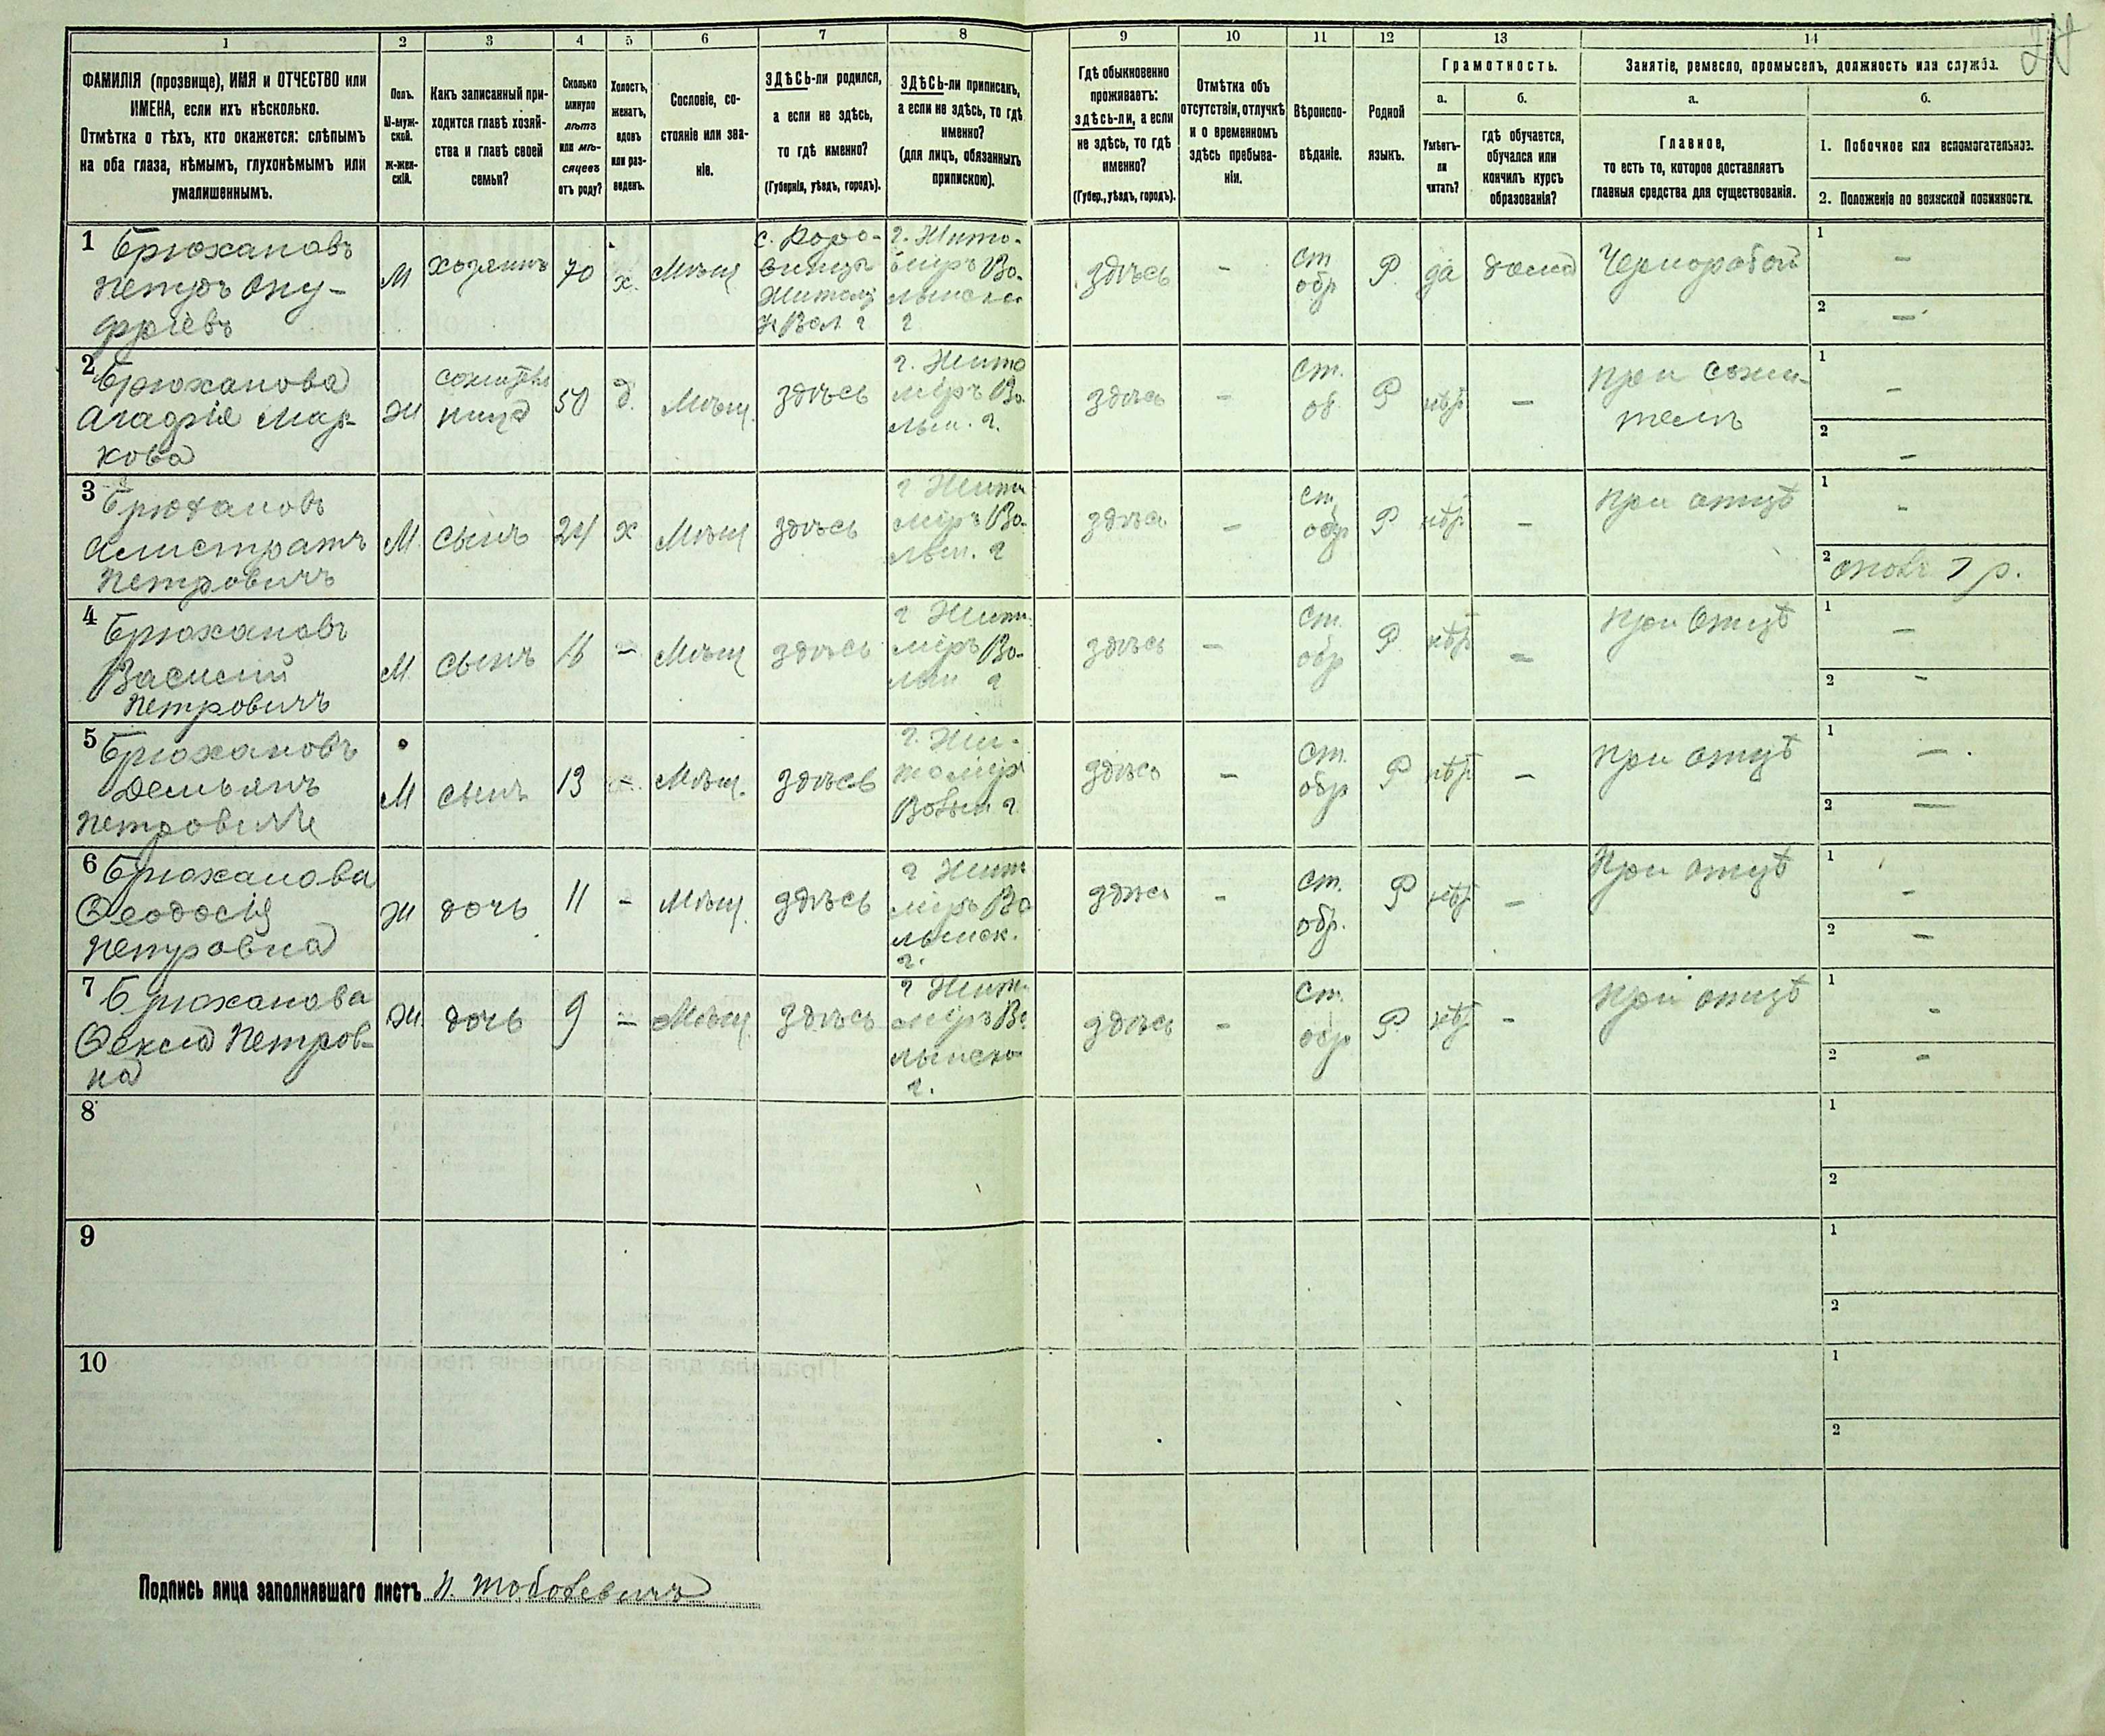 27
1 2 3 4 5 6 7 8 9 10 11 12 13 14
ФАМИЛІЯ (прозвище), ИМЯ и ОТЧЕСТВО или
ИМЕНА, если ихъ нѣсколько.
Отмѣтка о тѣхъ, кто окажется: слѣпымъ
на оба глаза, нѣмымъ, глухонѣмымъ или
умалишеннымъ.
Полъ.
М-муж-
ской.
Ж-жен-
скій.
Какъ записанный при-
ходится главѣ хозяй-
ства и главѣ своей
семьи?
Сколько
минуло
лѣтъ
или мѣ-
сяцевъ
отъ роду?
Холостъ,
женатъ,
вдовъ
или раз-
веденъ.
Сословіе, со-
стояніе или зва-
ніе.
ЗДѢСЬ-ли родился,
а если не здѣсь,
то гдѣ именно?
(Губернія, уѣздъ, городъ).
ЗДѢСЬ-ли приписанъ,
а если не здѣсь, то гдѣ
именно?
(для лицъ, обязанныхъ
припискою).
Гдѣ обыкновенно
проживаетъ:
здѣсь-ли, а если
не здѣсь, то гдѣ
именно?
(Губер., уѣздъ, городъ).
Отмѣтка объ
отсутствіи, отлучкѣ
и о временномъ
здѣсь пребыва-
ніи.
Вѣроиспо-
вѣданіе.
Родной
языкъ.
Грамотность.
а.
Умѣетъ-
ли
читать?
б.
гдѣ обучается,
обучался или
кончилъ курсъ
образованія?
Занятіе, ремесло, промыселъ, должность или служба.
а.
Главное,
то есть то, которое доставляетъ
главныя средства для существованія.
б.
1. Побочное или вспомогательное.
2. Положеніе по воинской повинности.
1 Брюхановъ
Петръ Ону-
фріевъ
М
хозяинъ
70
х.
Мѣщ
Житом
у Вол. г
г. Жито-
міръ Во-
лынской
г
здѣсь
-
ст
обр
Р
да
дома
Чернорабочій
1 -
2 -
2 Брюханова
Агафія Мар-
кова
Ж
сожитель
ница
50
д.
Мѣщ.
здѣсь
г. Жито
міръ Во
лын. г.
здѣсь
-
ст.
об
Р
нѣт
-
при сожи-
телѣ
1 -
2 -
3 Брюхановъ
Калистратъ
Петровичъ
М
сынъ
24
х
Мѣщ
здѣсь
г Жито
міръ Во-
лын. г
здѣсь
-
ст
обр
Р
нѣт
-
при отцѣ
1 -
2 1 р.
4 Брюхановъ
Василий
Петровичъ
М
сынъ
16
-
Мѣщ
здѣсь
г Жито
міръ Во-
лын г
здѣсь
-
ст.
обр
Р
нѣт
-
при отцѣ
1 -
2 -
5 Брюхановъ
Демьянъ
Петровичъ
М
сынъ
13
-
Мѣщ.
здѣсь
г. Жи-
томіръ
Волын г
здѣсь
-
ст.
обр
Р
нѣт
-
при отцѣ
1 -
2 -
6 Брюханова
Ѳеодосія
Петровна
Ж
дочь
11
-
Мѣщ.
здѣсь
г Жито
міръ Во
лынск.
г.
здѣсь
-
ст.
обр.
Р
нѣт
-
При отцѣ
1 -
2 -
7 Брюханова
Ѳекла Петров-
на
Ж
дочь
9
-
Мѣщ
здѣсь
г Жито
міръ Во
лынско
г.
здѣсь
-
ст.
обр
Р
нѣт
-
При отцѣ
1 -
2 -
8
1
2
9
1
2
10
1
2
Подпись лица заполнявшаго листъ